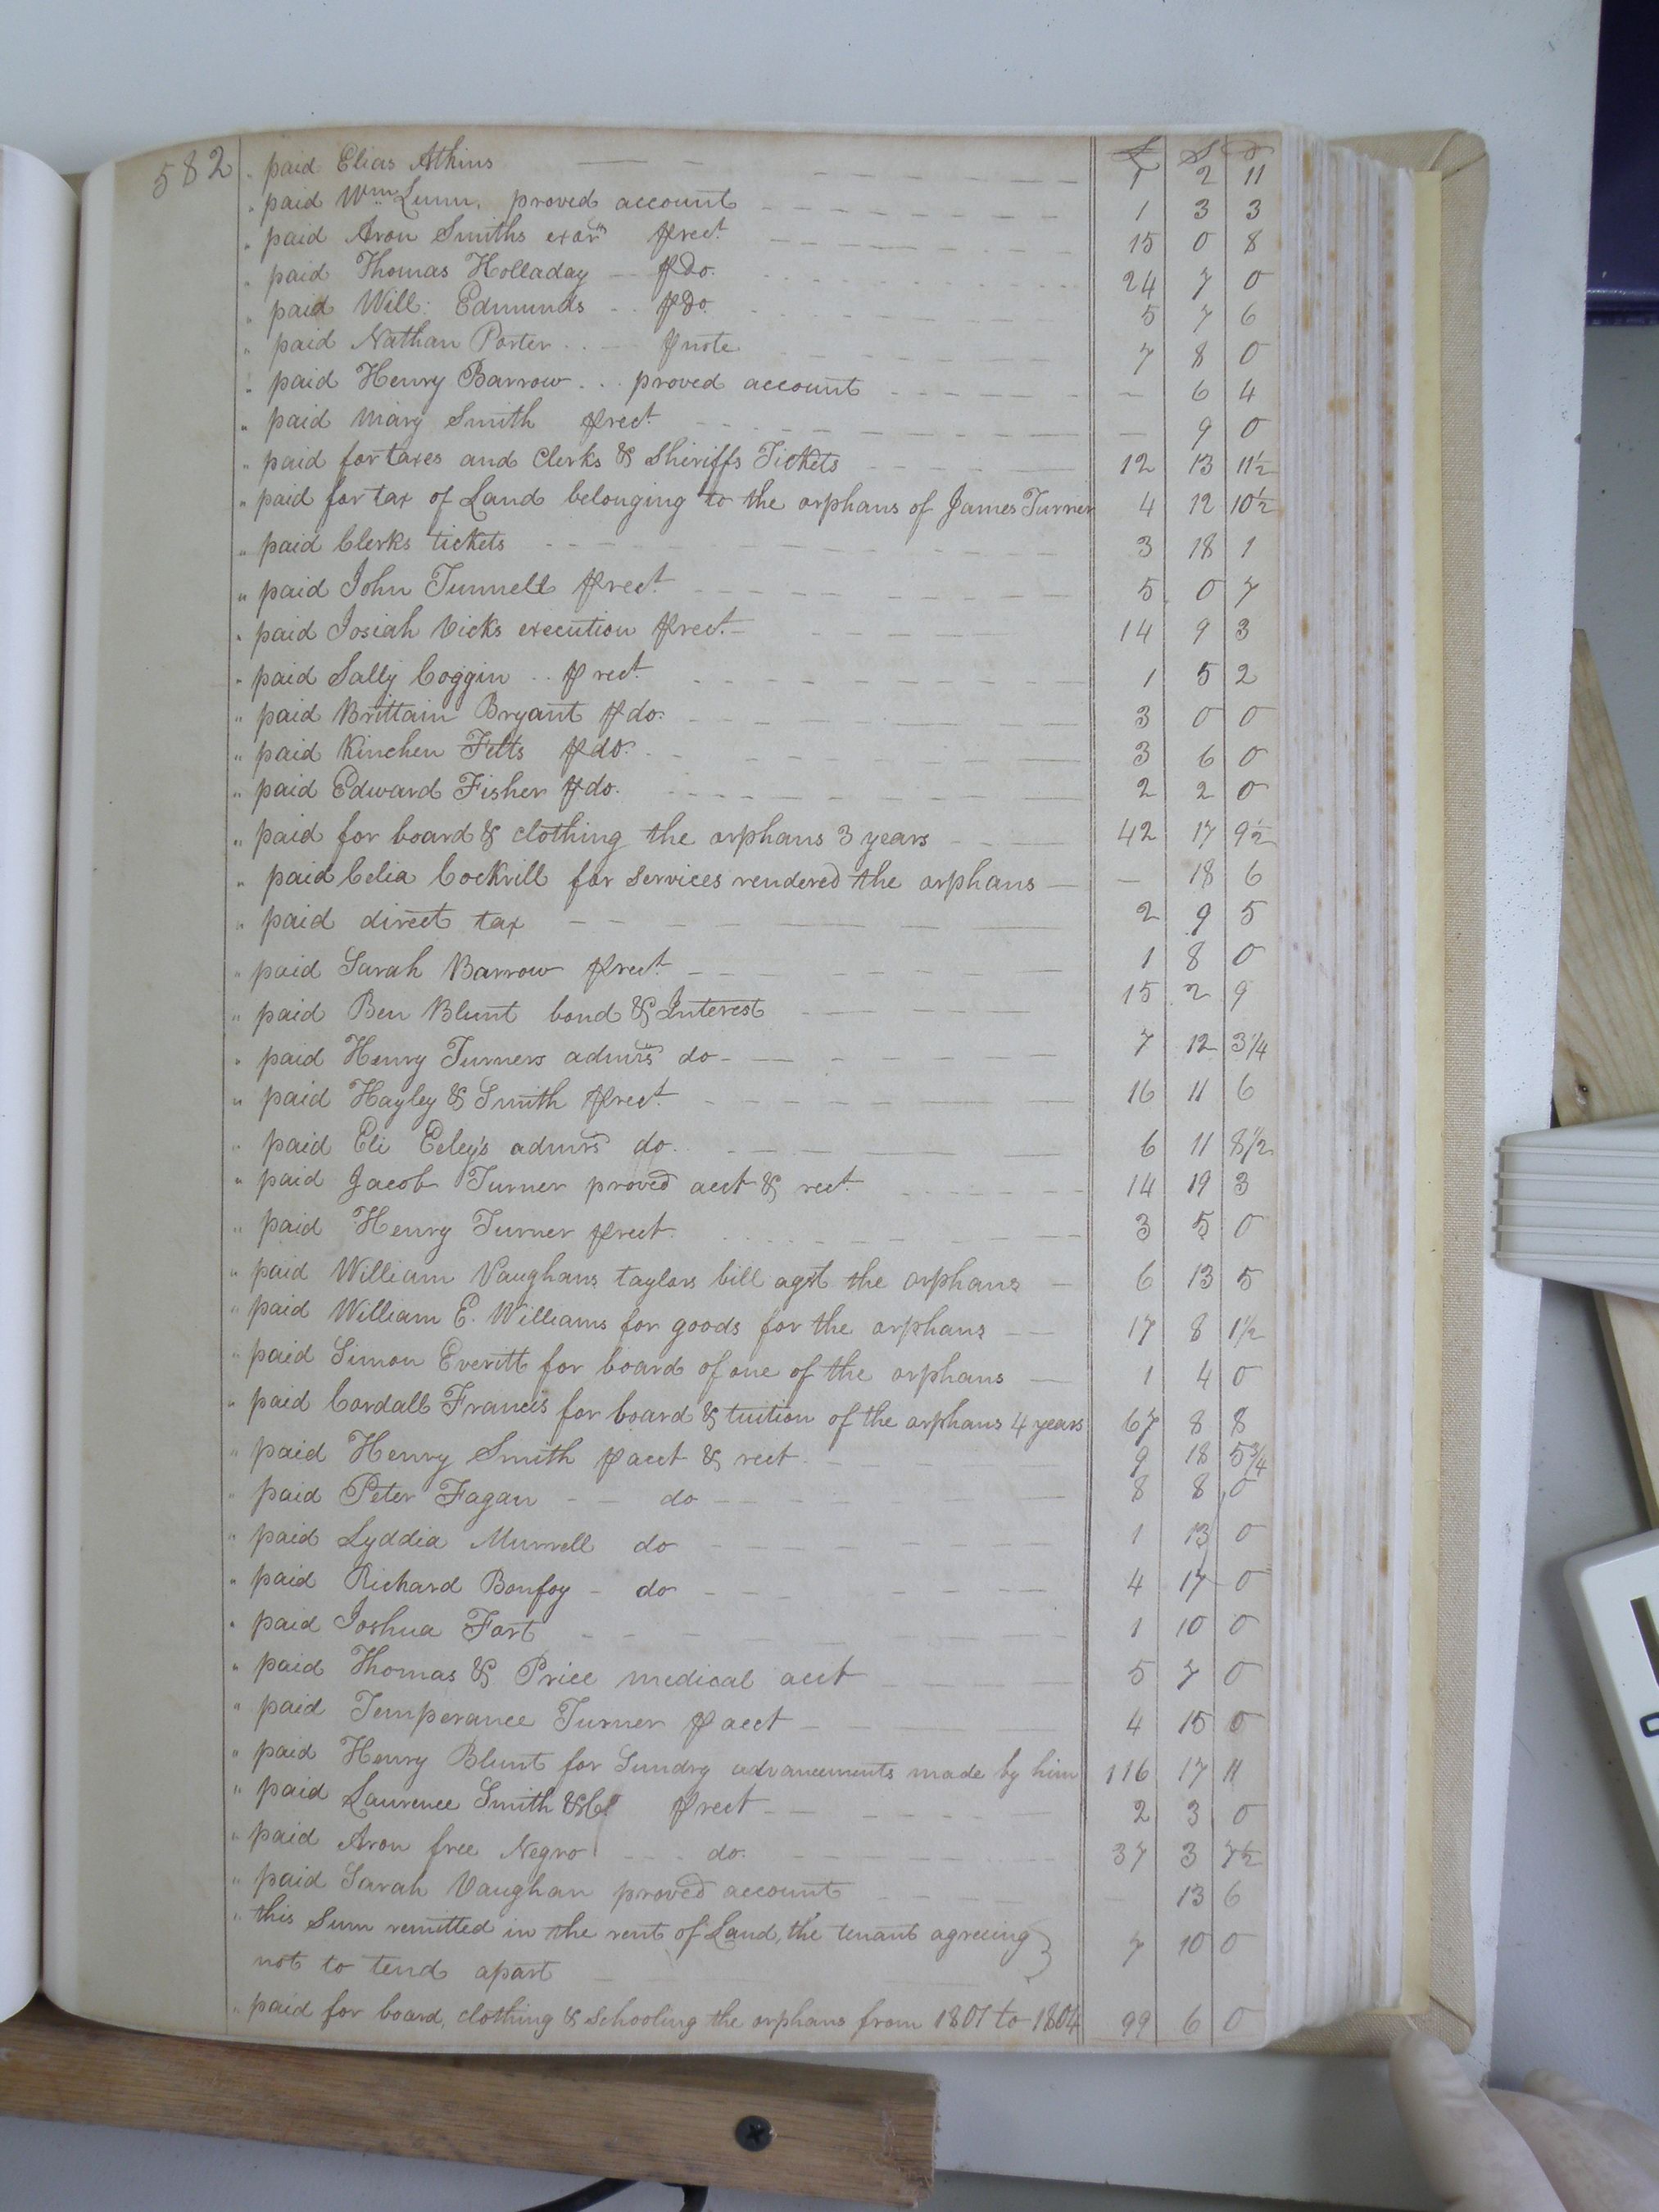 582
£ S D
" paid Elias Atkins 1 2 11
" paid Wm Lunn, proved account 1 3 3
" paid Aron Smiths exors ⅌ rect. 15 0 8
" paid Thomas Holladay ⅌ Do. 24 7 0
" paid Will: Edmunds ⅌ Do 5 7 6
" paid Nathan Porter ⅌ note 7 8 0
" paid Henry Barrow proved account — 6 4
" paid Mary Smith ⅌ rect. — 9 0
" paid for taxes and Clerks & Sheriffs Tickets 12 13 11½
" paid for tax of Land belonging to the orphans of James Turner 4 12 10½
" paid Clerks tickets 3 18 1
" paid John Tunnell ⅌ rect. 5 0 7
" paid Josiah Vicks execution ⅌ rect. 14 9 3
" paid Sally Coggin ⅌ rect. 1 5 2
" paid Brittain Bryant ⅌ do. 3 0 0
" paid Kinchen Felts ⅌ do. 3 6 0
" paid Edward Fisher ⅌ do. 2 2 0
" paid for board & clothing the orphans 3 years 42 17 9½
" paid Celia Cockrill for services rendered the orphans — 18 6
" paid direct tax 2 9 5
" paid Sarah Barrow ⅌ rect. 1 8 0
" paid Ben Blunt bond & Interest 15 2 9
" paid Henry Turners admrs do 7 12 3¼
" paid Hayley & Smith ⅌ rect. 16 11 6
" paid Eli Eley's admrs do. 6 11 8½
" paid Jacob Turner proved acct & rect. 14 19 3
" paid Henry Turner ⅌ rect. 3 5 0
" paid William Vaughans taylors bill agst the orphans 6 13 5
" paid William E. Williams for goods for the orphans 17 8 1½
" paid Simon Everitt for board of one of the orphans 1 4 0
" paid Cordall Francis for board & tuition of the orphans 4 years 67 8 8
" paid Henry Smith ⅌ acct & rect. 9 18 5¾
" paid Peter Fagan do 8 8 0
" paid Lyddia Murrell do 1 13 0
" paid Richard Bonfoy do 4 17 0
" paid Joshua Fort 1 10 0
" paid Thomas & Price medical acct 5 7 0
" paid Temperance Turner ⅌ acct 4 15 0
" paid Henry Blunt for Sundry advancements made by him 116 17 11
" paid Laurence Smith &Co ⅌ rect 2 3 0
" paid Aron free Negro do. 37 3 7½
" paid Sarah Vaughan proved account 13 6
" this Sum remitted in the rent of Land, the tenant agreeing
not to tend apart 7 10 0
" paid for board, clothing & schooling the orphans from 1801 to 1804 99 6 0